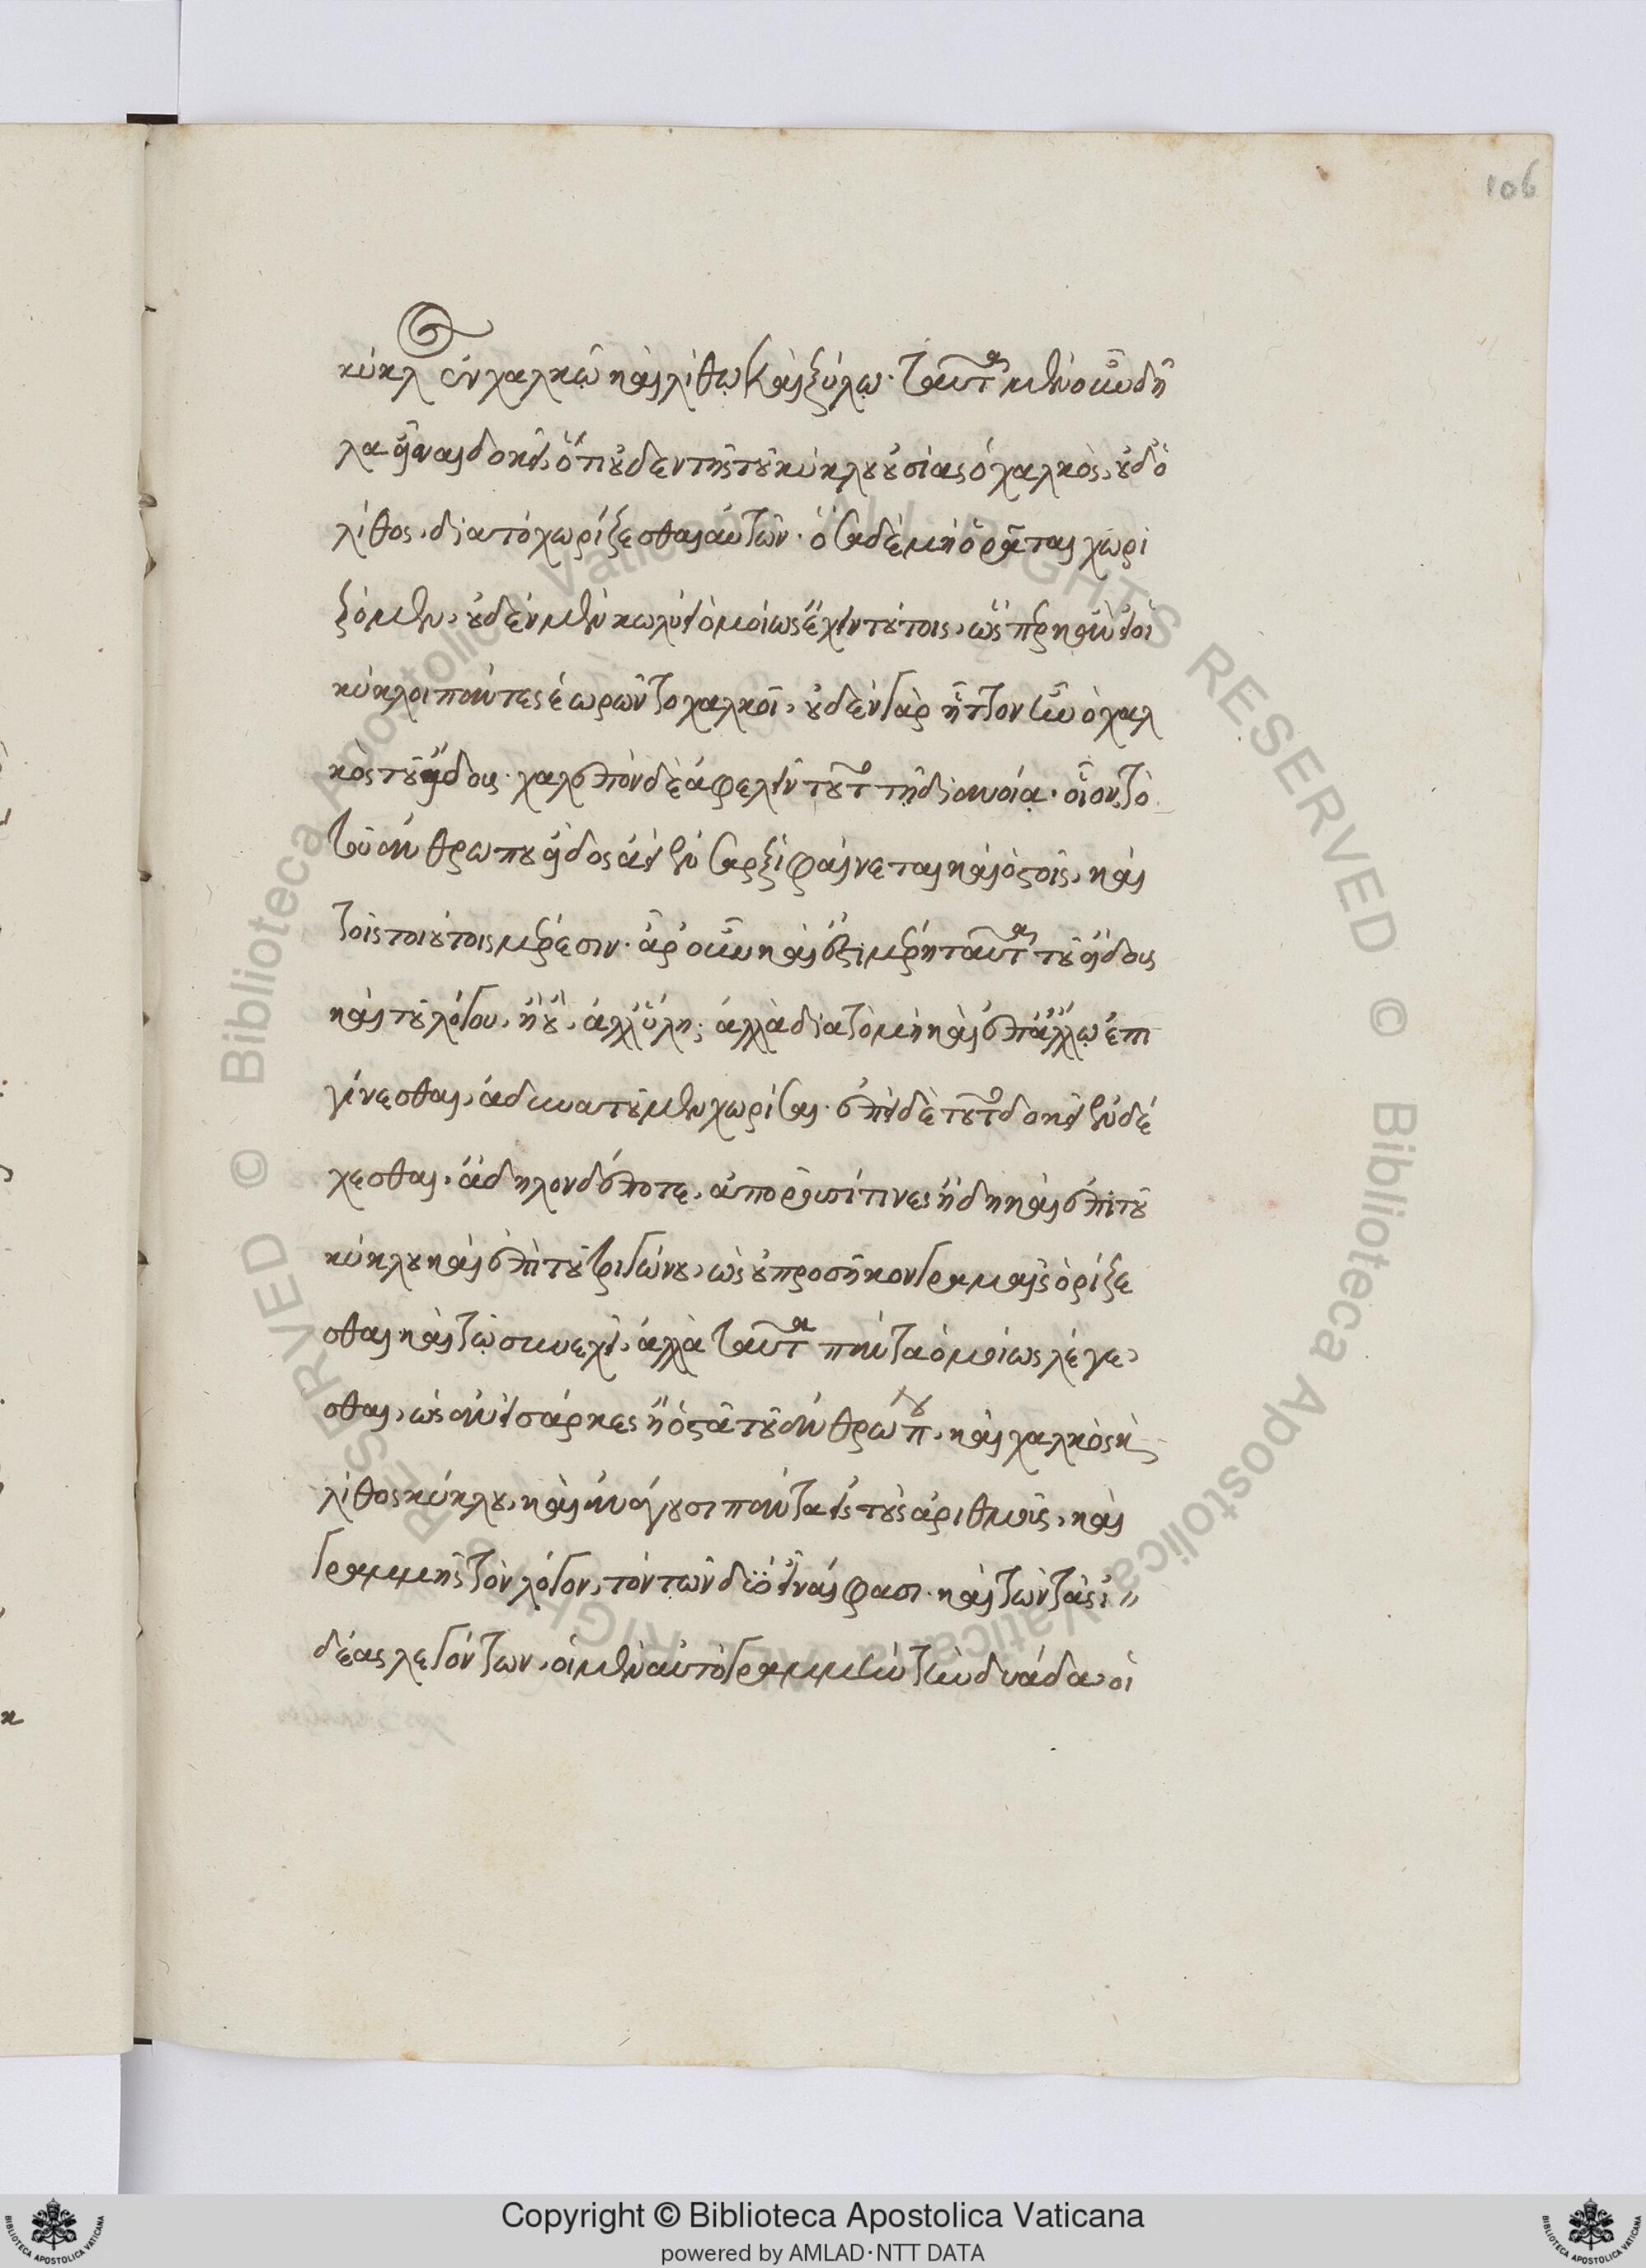 106
κύκλος ἐν χαλκῷ καὶ λίθῳ καὶ ξύλῳ· ταῦτα μὲν οὖν δῆ
λα εἶναι δοκεῖ, ὅτι οὐδὲν τῆς τοῦ κύκλου οὐσίας ὁ χαλκὸς, οὐδ' ὁ
λίθος, διὰ τὸ χωρίζεσθαι αὐτῶν· ὅσα δὲ μὴ ὁρᾶται χωρι
ζόμενα, οὐδὲν μὲν κωλύει ὁμοίως ἔχειν τούτοις, ὥσπερ κἂν εἰ οἱ
κύκλοι πάντες ἑωρῶντο χαλκοῖ, οὐδὲν γὰρ ἧττον ἦν ὁ χαλ
κὸς τοῦ εἴδους· χαλεπὸν δὲ ἀφελεῖν τοῦτο τῇ διανοίᾳ· οἷον τὸ
τοῦ ἀνθρώπου εἶδος ἀεὶ ἐν σαρξὶ φαίνεται καὶ ὀστοῖς, καὶ
τοῖς τοιούτοις μέρεσιν· ἆρ' οὖν καὶ ἐστὶ μέρη ταῦτα τοῦ εἴδους
καὶ τοῦ λόγου, ἢ οὔ, ἀλλ' ὕλη; ἀλλὰ διὰ τὸ μὴ καὶ ἐπ' ἄλλων ἐπι
γίνεσθαι, ἀδυνατοῦμεν χωρίσαι· ἐπεὶ δὲ τοῦτο δοκεῖ ἐνδέ
χεσθαι, ἄδηλον δὲ πότε, ἀποροῦσί τινες ἤδη καὶ ἐπὶ τοῦ
κύκλου καὶ ἐπὶ τοῦ τριγώνου, ὡς οὐ προσῆκον γραμαῖς ὁρίζε
σθαι καὶ τῷ συνεχεῖ, ἀλλὰ ταῦτα πάντα ὁμοίως λέγε
σθαι, ὡσανεὶ σάρκες ἢ ὀστᾶ τοῦ ἀνθρώπου, καὶ χαλκὸς καὶ
λίθος κύκλου, καὶ ἀνάγουσι πάντα εἰς τοὺς ἀριθμοὺς, καὶ
γραμμῆς τὸν λόγον, τὸν τῶν δύο εἶναί φασι· καὶ τῶν τὰς ἰ
δέας λεγόντων, οἱ μὲν αὐτὸ γραμμὴν τὴν δυάδα, οἱ
Copyright © Biblioteca Apostolica Vaticana
powered by AMLAD·NTT DATA